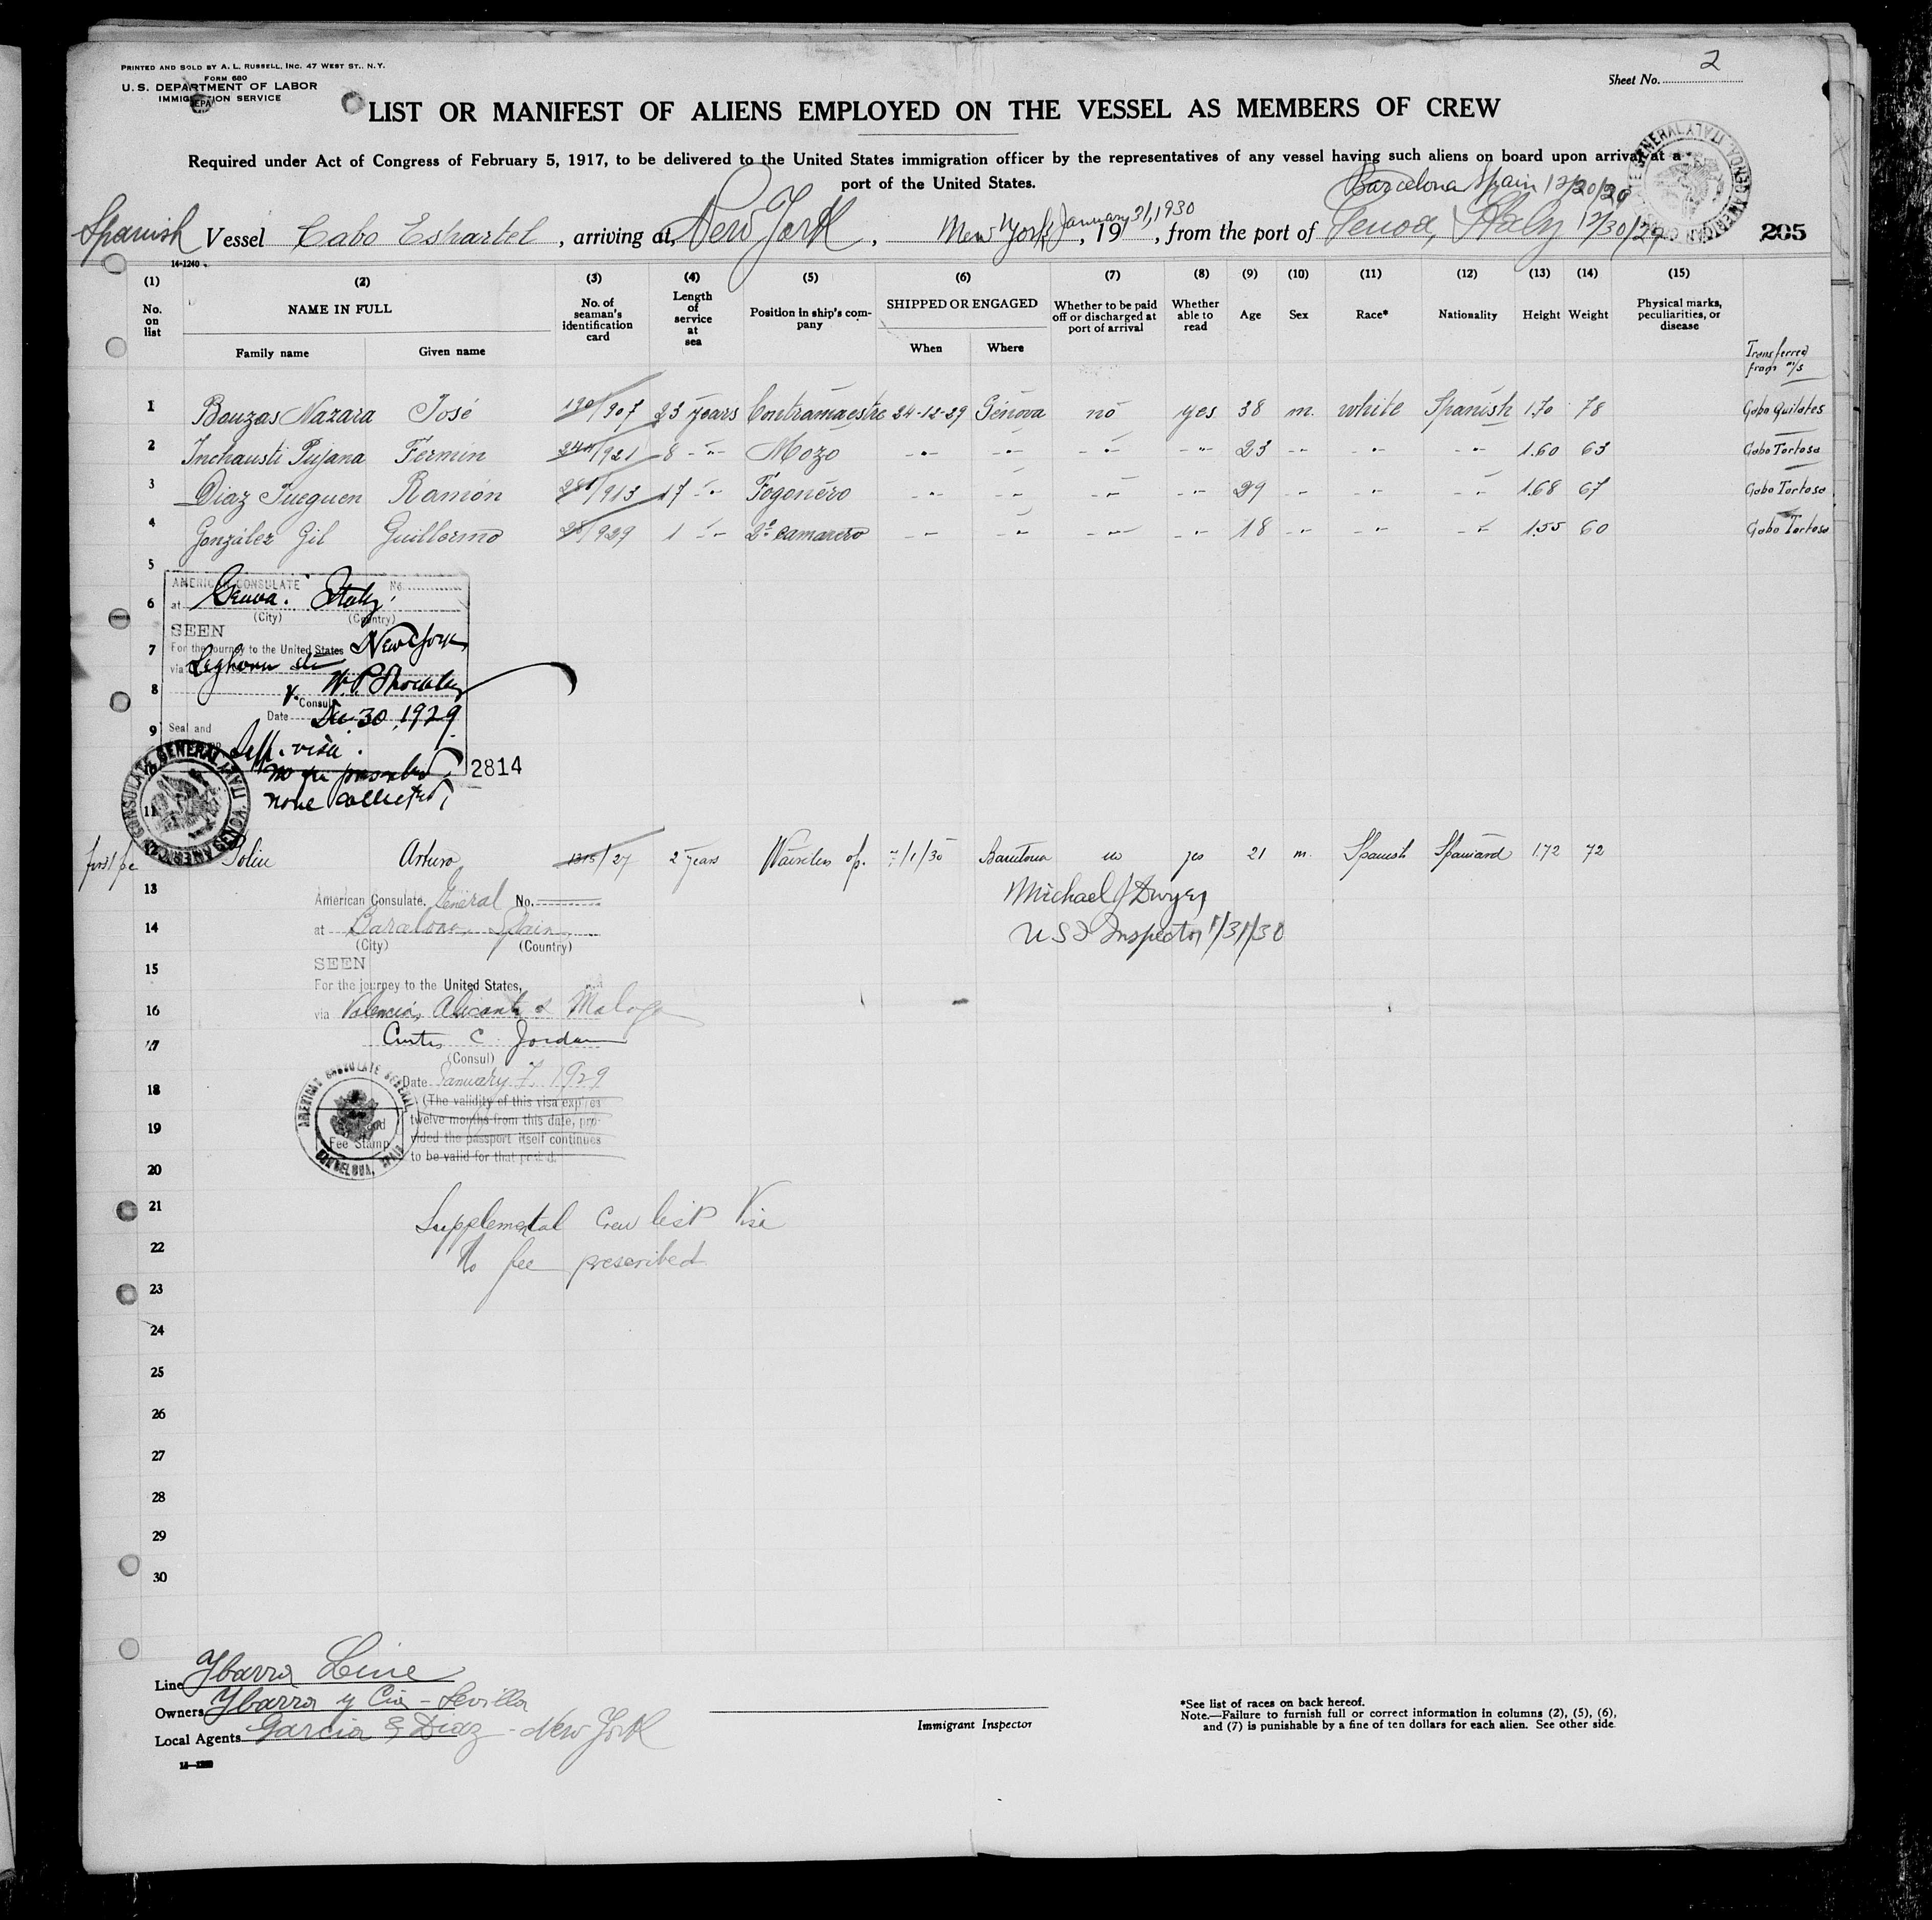 PRINTED AND SOLD BY A. L. RUSSELL, INC. 47 WEST ST., N.Y.
FORM 680
U. S. DEPARTMENT OF LABOR
IMMIGRATION SERVICE
Sheet No. 2
LIST OR MANIFEST OF ALIENS EMPLOYED ON THE VESSEL AS MEMBERS OF CREW
Required under Act of Congress of February 5, 1917, to be delivered to the United States immigration officer by the representatives of any vessel having such aliens on board upon arrival at a
port of the United States.
Barcelona Spain 12/20/29
Spanish Vessel Cabo Espartel, arriving at New York, New York January 31, 1930, 19, from the port of Genoa, Italy 12/30/29
205
14-1240
(1) (2) (3) (4) (5) (6) (7) (8) (9) (10) (11) (12) (13) (14) (15)
No. on list NAME IN FULL No. of seaman's identification card Length of service at sea Position in ship's company SHIPPED OR ENGAGED Whether to be paid off or discharged at port of arrival Whether able to read Age Sex Race* Nationality Height Weight Physical marks, peculiarities, or disease
Family name Given name When Where
Transferred from m/s
1 Bouzas Nazara José 190/907 23 years Contramaestre 24-12-29 Génova no yes 38 m. white Spanish 1.70 78 Cabo Quilates
2 Inchausti Pujana Fermin 244/921 8 -"- Mozo -"- -"- -"- -"- 23 -"- -"- -"- 1.60 63 Cabo Tortosa
3 Diaz Ramón 281/913 17 -"- Fogonero -"- -"- -"- -"- 29 -"- -"- -"- 1.68 67 Cabo Tortosa
4 González Gil Guillermo 28/929 1 -"- 2º camarero -"- -"- -"- -"- 18 -"- -"- -"- 1.55 60 Cabo Tortosa
5
AMERICAN CONSULATE No.
6
at Genoa. Italy.
(City) (Country)
SEEN
7
For the journey to the United States New York
via Leghorn
8
V. Consul
Date Dec. 30, 1929.
9
Seal and
Suppl. visa.
No fee prescribed,
none collected,
2814
AMERICAN CONSULATE GENERAL GENOA, ITALY
11
Arturo 1315/27 2 years Wireless op. 7/1/30 Barcelona no yes 21 m. Spanish Spaniard 1.72 72
13
American Consulate General No.
Michael J Dwyer
14
at Barcelona, Spain
(City) (Country)
U S I Inspector 1/31/30
15
SEEN
For the journey to the United States,
16
via Valencia, Alicante & Malaga
17
Curtis C. Jordan
(Consul)
18
Date January 7, 1929
(The validity of this visa expires
19
twelve months from this date, pro-
vided the passport itself continues
to be valid for that period.
Fee Stamp
AMERICAN CONSULATE GENERAL BARCELONA, SPAIN
20
21
Supplemental Crew list Visa
22
No fee prescribed
23
24
25
26
27
28
29
30
Line Ybarra Line
Owners Ybarra y Cia - Sevilla
Local Agents Garcia & Diaz - New York
Immigrant Inspector
*See list of races on back hereof.
Note.—Failure to furnish full or correct information in columns (2), (5), (6),
and (7) is punishable by a fine of ten dollars for each alien. See other side.